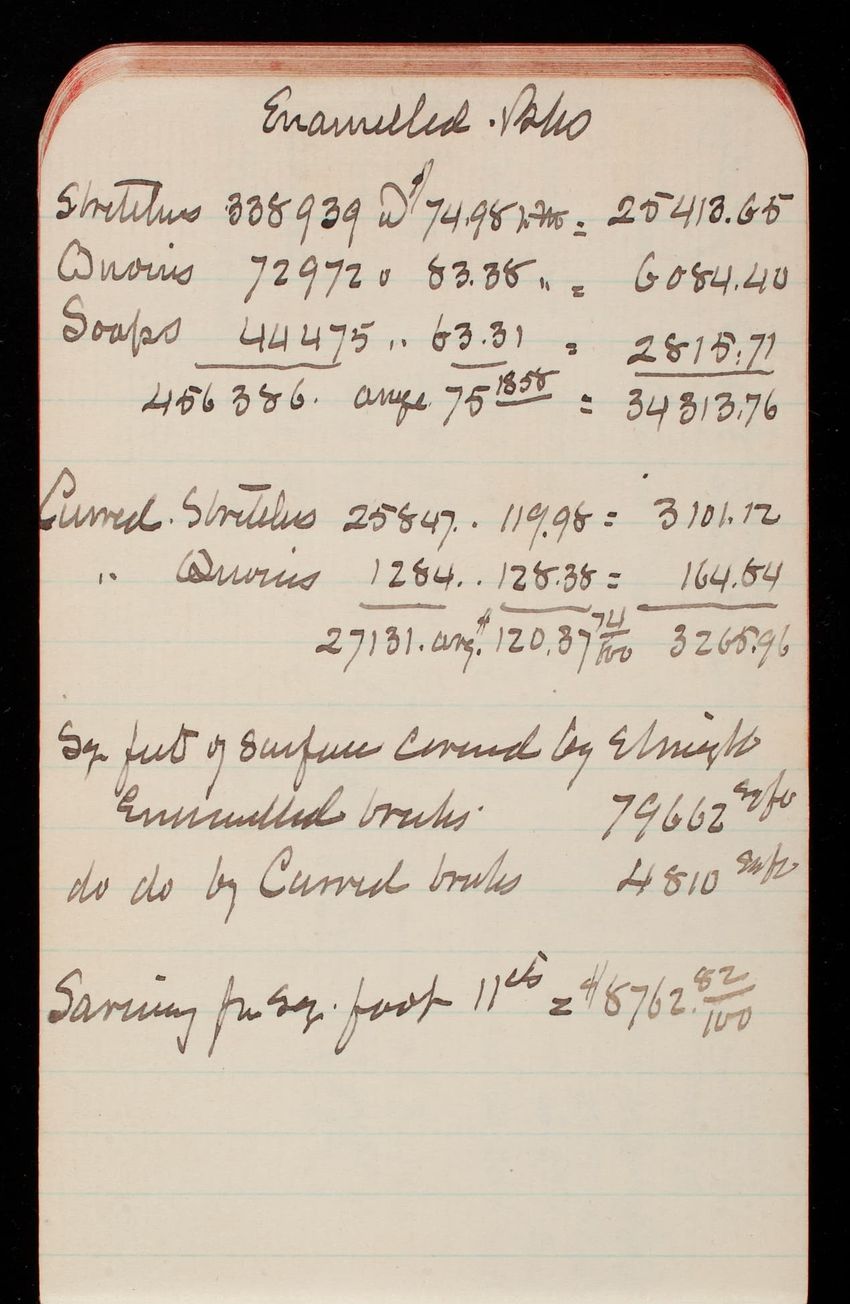 Enamelled Bks
Stretchers 338939 @ $74.98 = 25413.65
Quoins 72972 " 83.38 " = 6084.40
Soaps 44475 " 63.31 = 2815.71
456386. avge 75 1858 = 34313.76
Curved Stretchers 25847 .. 119.98 = 3101.12
" Quoins 1284 .. 128.38 = 164.84
27131. avg. $120.37 74/100 3265.96
Sq. feet of surface covered by Straight
Enamelled bricks 79662 sq ft
do do by Curved bricks 4810 sq ft
Saving per Sq. foot 11 cts = $8762.82/100